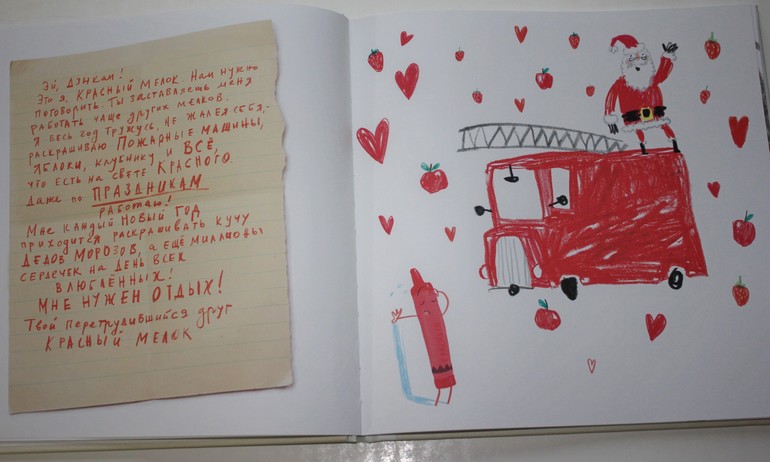 Эй, Дункан!
Это я, Красный мелок. Нам нужно
поговорить. Ты заставляешь меня
работать чаще других мелков.
Я весь год тружусь, не жалея себя,-
раскрашиваю Пожарные машины,
яблоки, клубнику и всё,
что есть на свете Красного.
Даже по ПРАЗДНИКАМ
работаю!
Мне каждый Новый год
приходится раскрашивать кучу
Дедов Морозов, а ещё миллионы
сердечек на День всех
влюблённых!
Мне нужен отдых!
Твой перетрудившийся друг
Красный мелок